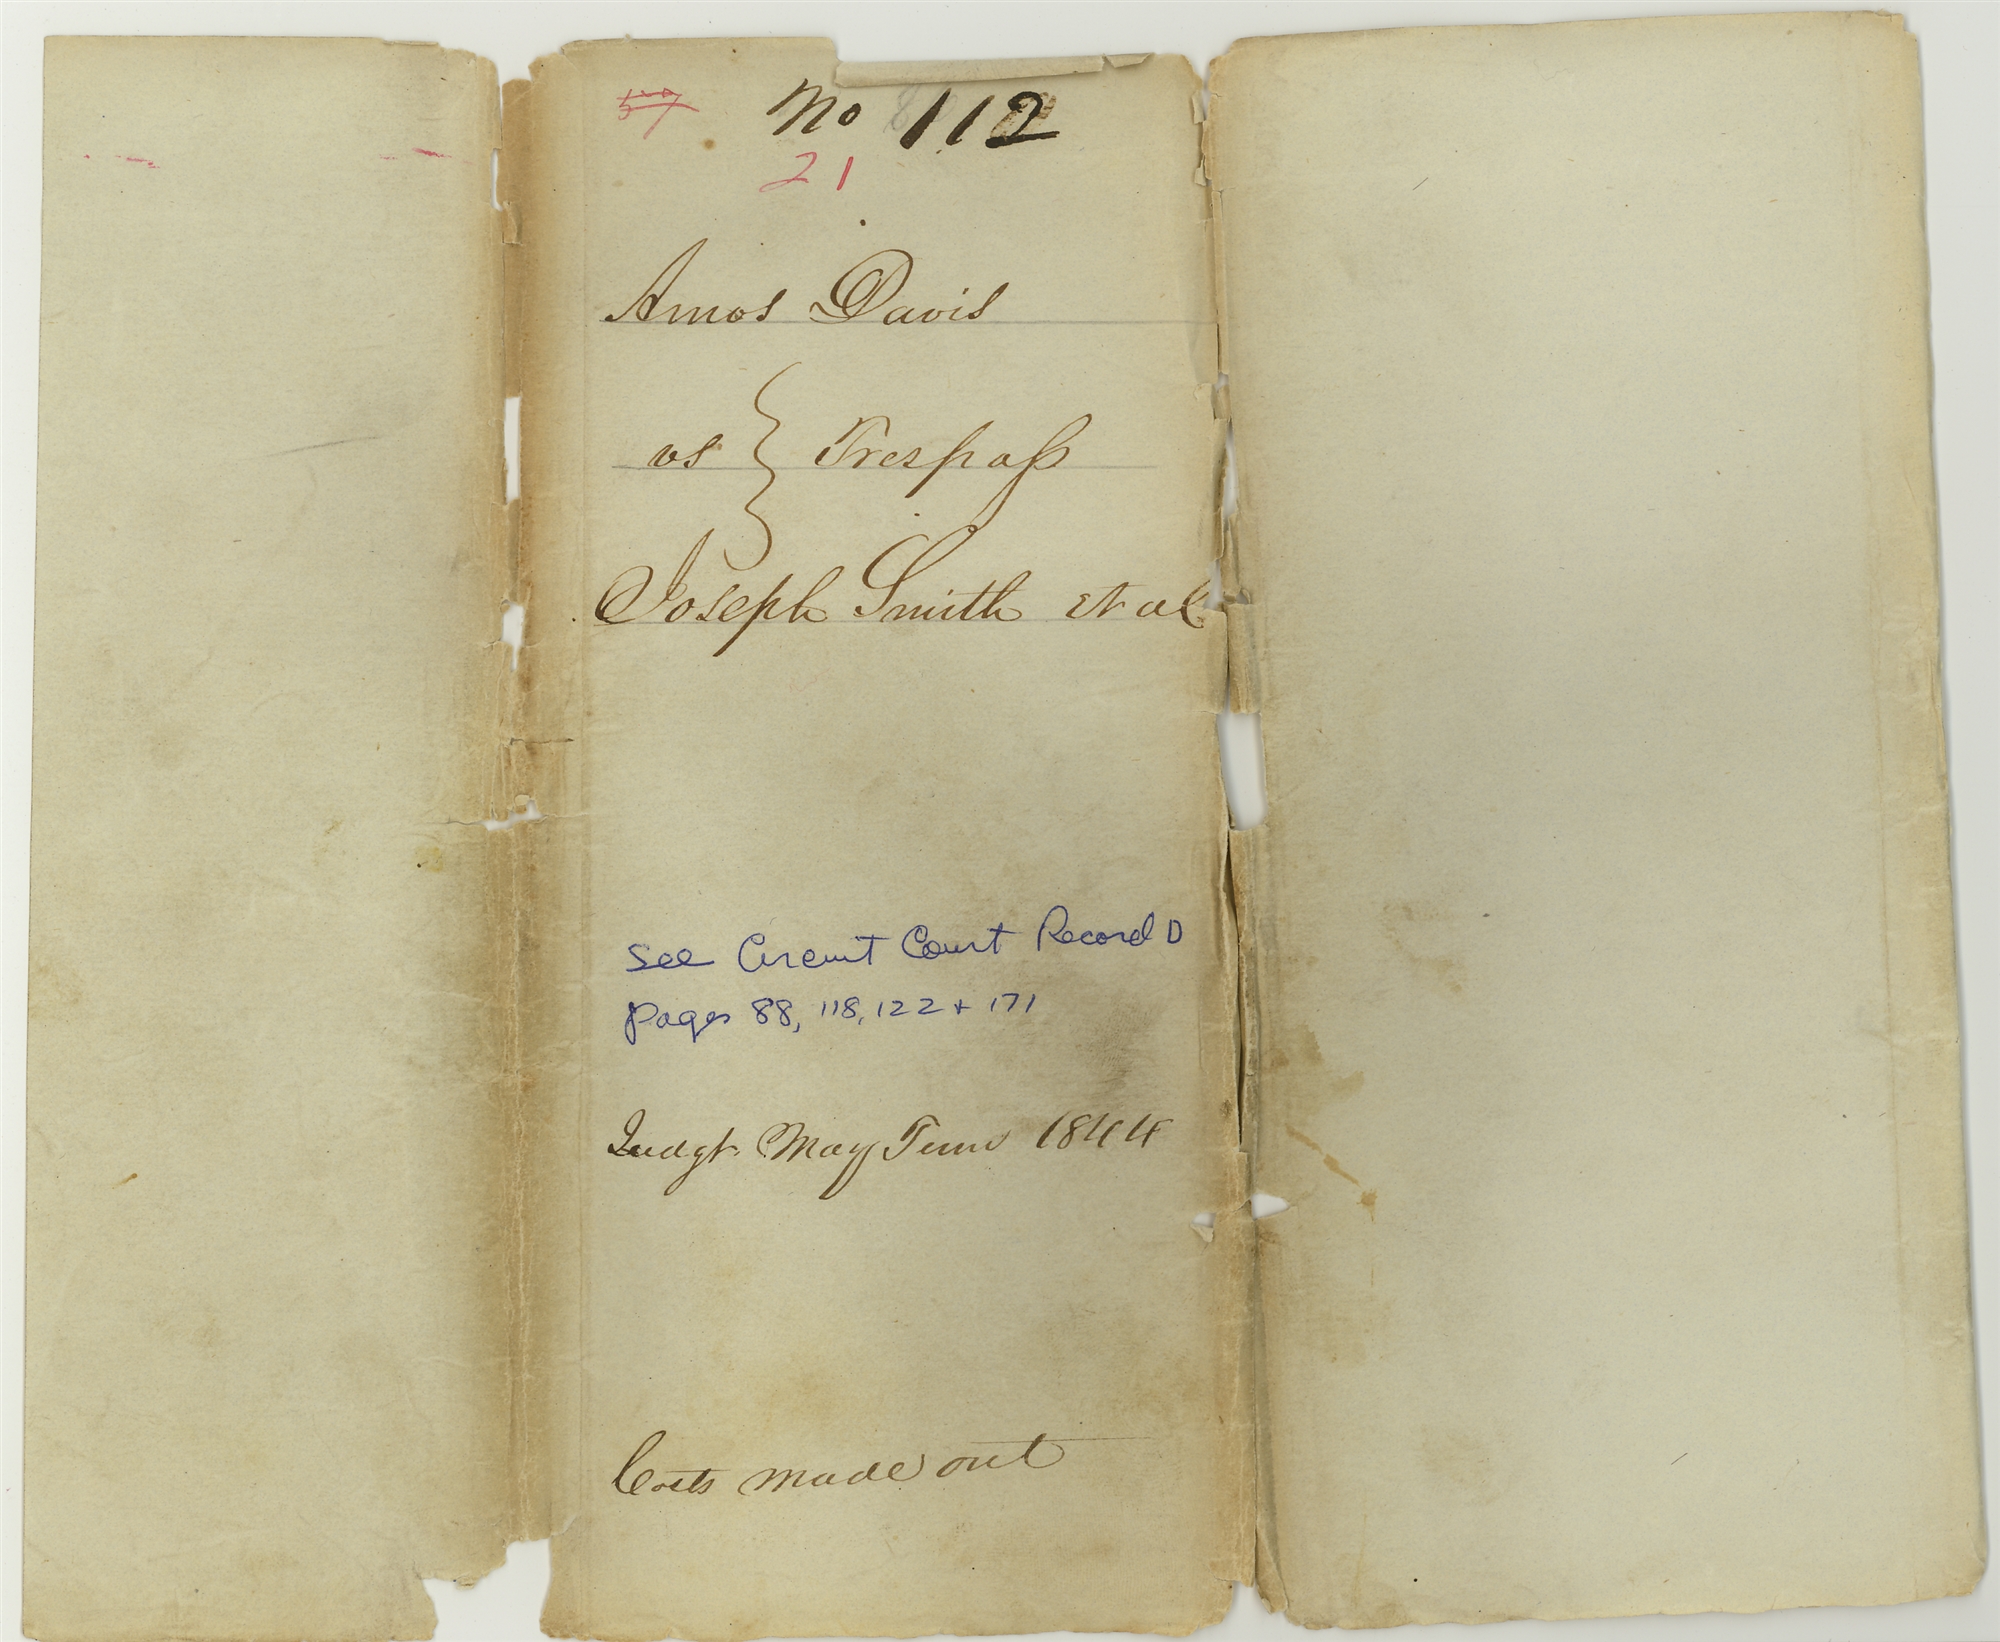 57 No 112
21
Amos Davis
vs } Trespass
Joseph Smith et al
See Circuit Court Record D
pages 88, 118, 122 + 171
Judgt. May Term 1844
Costs made out